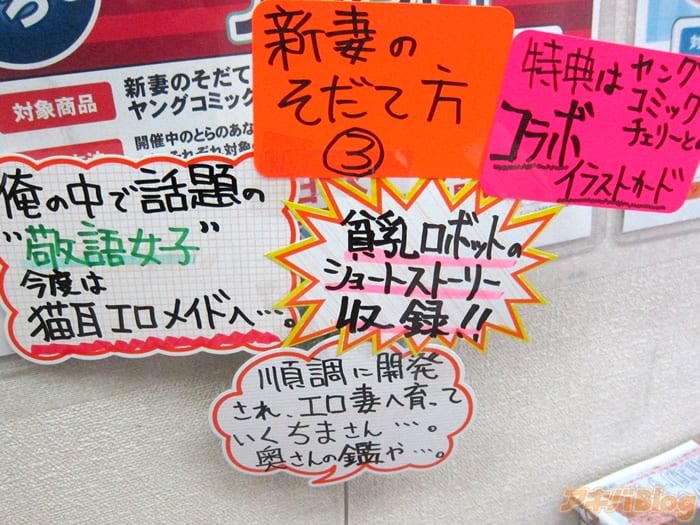 新妻の
そだて方
③
特典は ヤング
コミック
チェリーとの
コラボ
イラストカード
対象商品
新妻のそだて
ヤングコミック
開催中のとらのあな
それぞれ対象
俺の中で話題の
"敬語女子"
今度は
猫耳エロメイドへ…。
貧乳ロボットの
ショートストーリー
収録!!
順調に開発
され、エロ妻へ育って
いくちまさん…。
奥さんの鑑や…。
アキバBlog